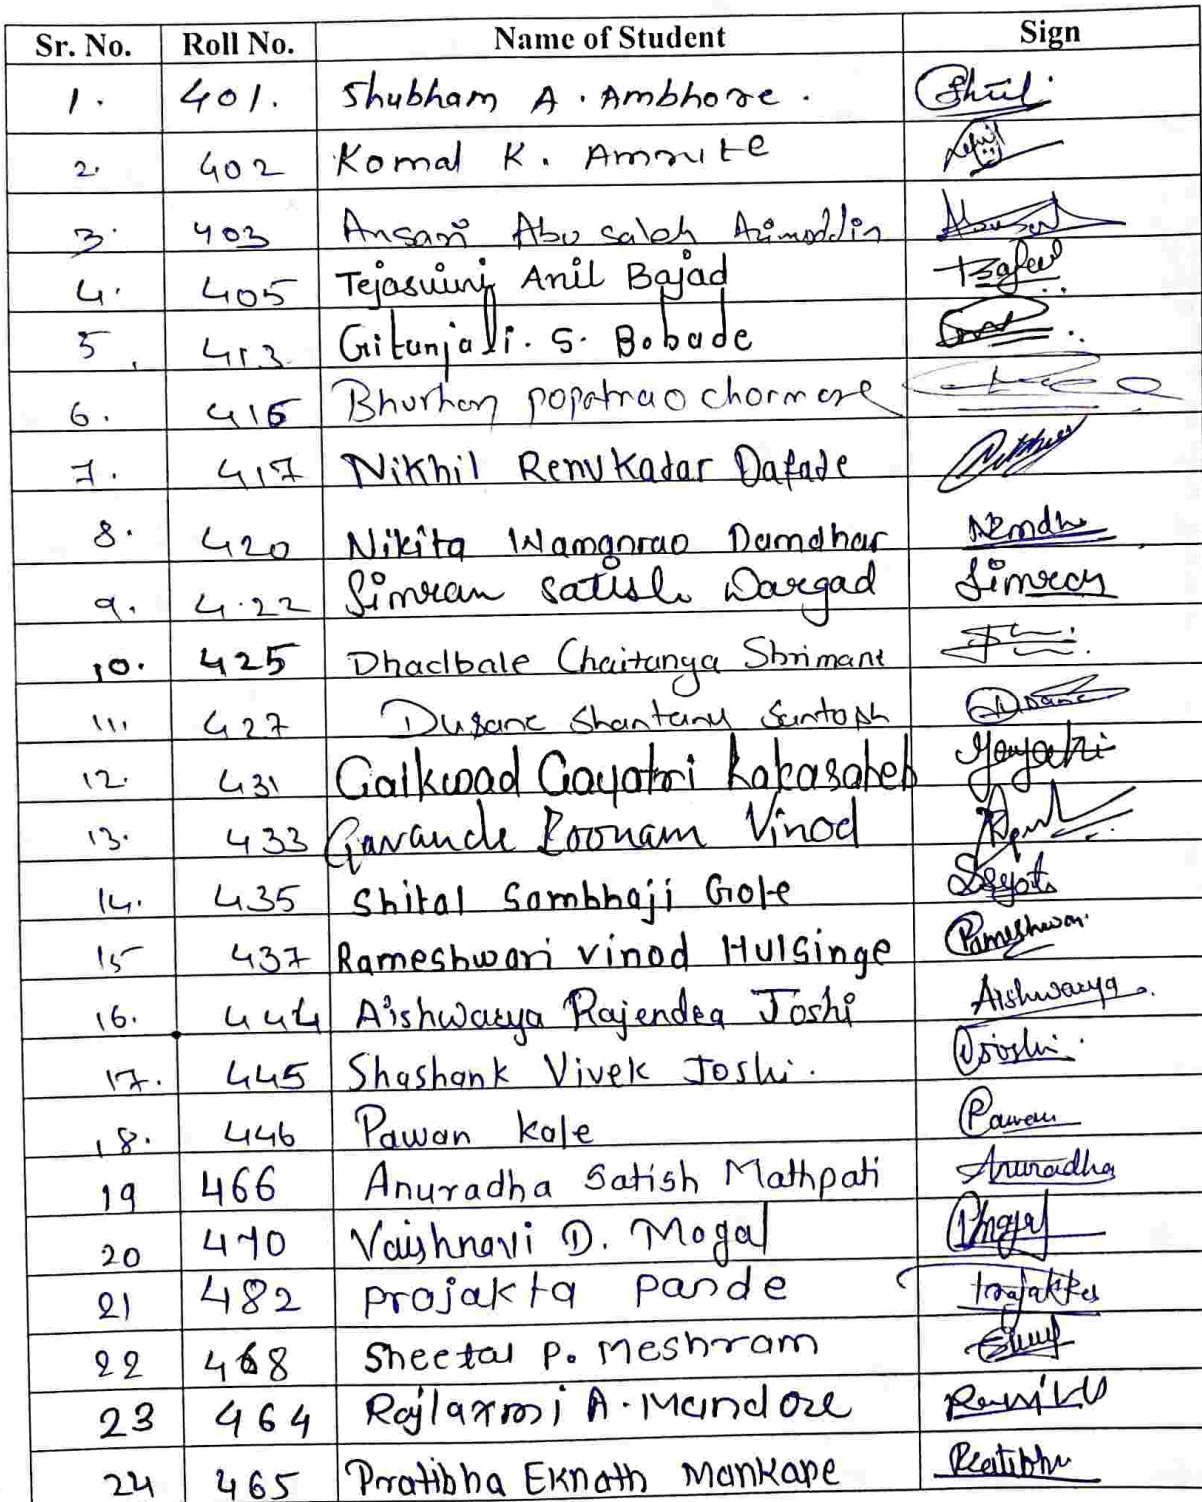 Sr. No. Roll No. Name of Student Sign
1. 401. Shubham A. Ambhore.
2. 402 Komal K. Amrute
3. 403 Ansari Abu saleh Azimoddin
4. 405 Tejaswini Anil Bajad
5. 413 Gitanjali. S. Bobade
6. 416 Bhushan popatrao chormare
7. 417 Nikhil Renukadar Dafade
8. 420 Nikita Wamanrao Damdhar
9. 422 Simran Satish Dargad Simran
10. 425 Dhadbale Chaitanya Shrimant
11. 427 Dusane Shantanu Santosh Dusane
12. 431 Gaikwad Gayatri Kakasaheb Gayatri
13. 433 Gavande Poonam Vinod
14. 435 Shital Sambhaji Gole
15 437 Rameshwari vinod Hulsinge Rameshwari
16. 444 Aishwarya Rajendra Joshi Aishwarya.
17. 445 Shashank Vivek Joshi.
18. 446 Pawan kale Pawan
19 466 Anuradha Satish Mathpati Anuradha
20 470 Vaishnavi D. Mogal
21 482 prajakta pande Prajakta
22 468 Sheetal P. Meshram
23 464 Rajlaxmi A. Mandore
24 465 Pratibha Eknath Mankape Pratibha